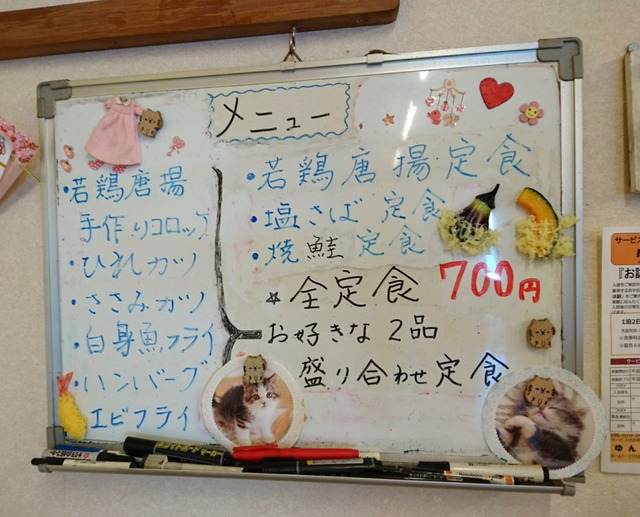 メニュー
・若鶏唐揚
手作りコロッケ
・ひれカツ
・ささみカツ
・白身魚フライ
・ハンバーグ
エビフライ
・若鶏唐揚定食
・塩さば定食
・焼鮭定食
☆全定食 700円
お好きな2品
盛り合わせ定食
サービス
『お試
1泊2日
ゆん